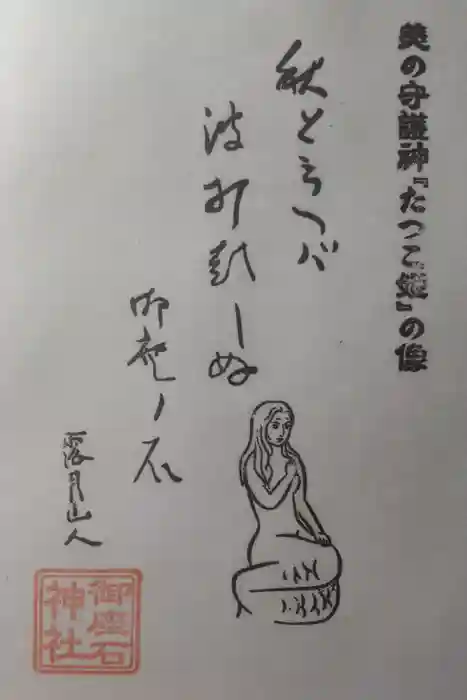 美の守護神『たつこ姫』の像
秋とらへバ
波打
しぬ
御座ノ石
霞月山人
御座石
神社